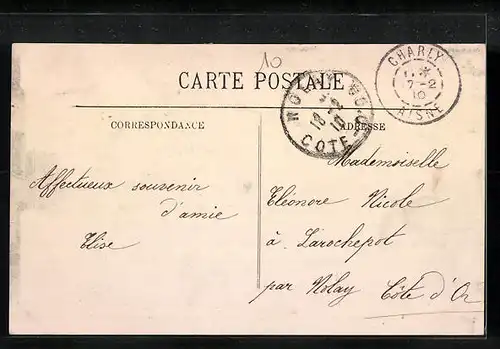 10
CARTE POSTALE
CHARLY
7-2
10
AISNE
NOLAY
COTE-D'OR
18
10
CORRESPONDANCE
ADRESSE
Affectueux souvenir
d'amie
Elise
Mademoiselle
Eléonore Nicole
à Larochepot
par Nolay Côte d'Or